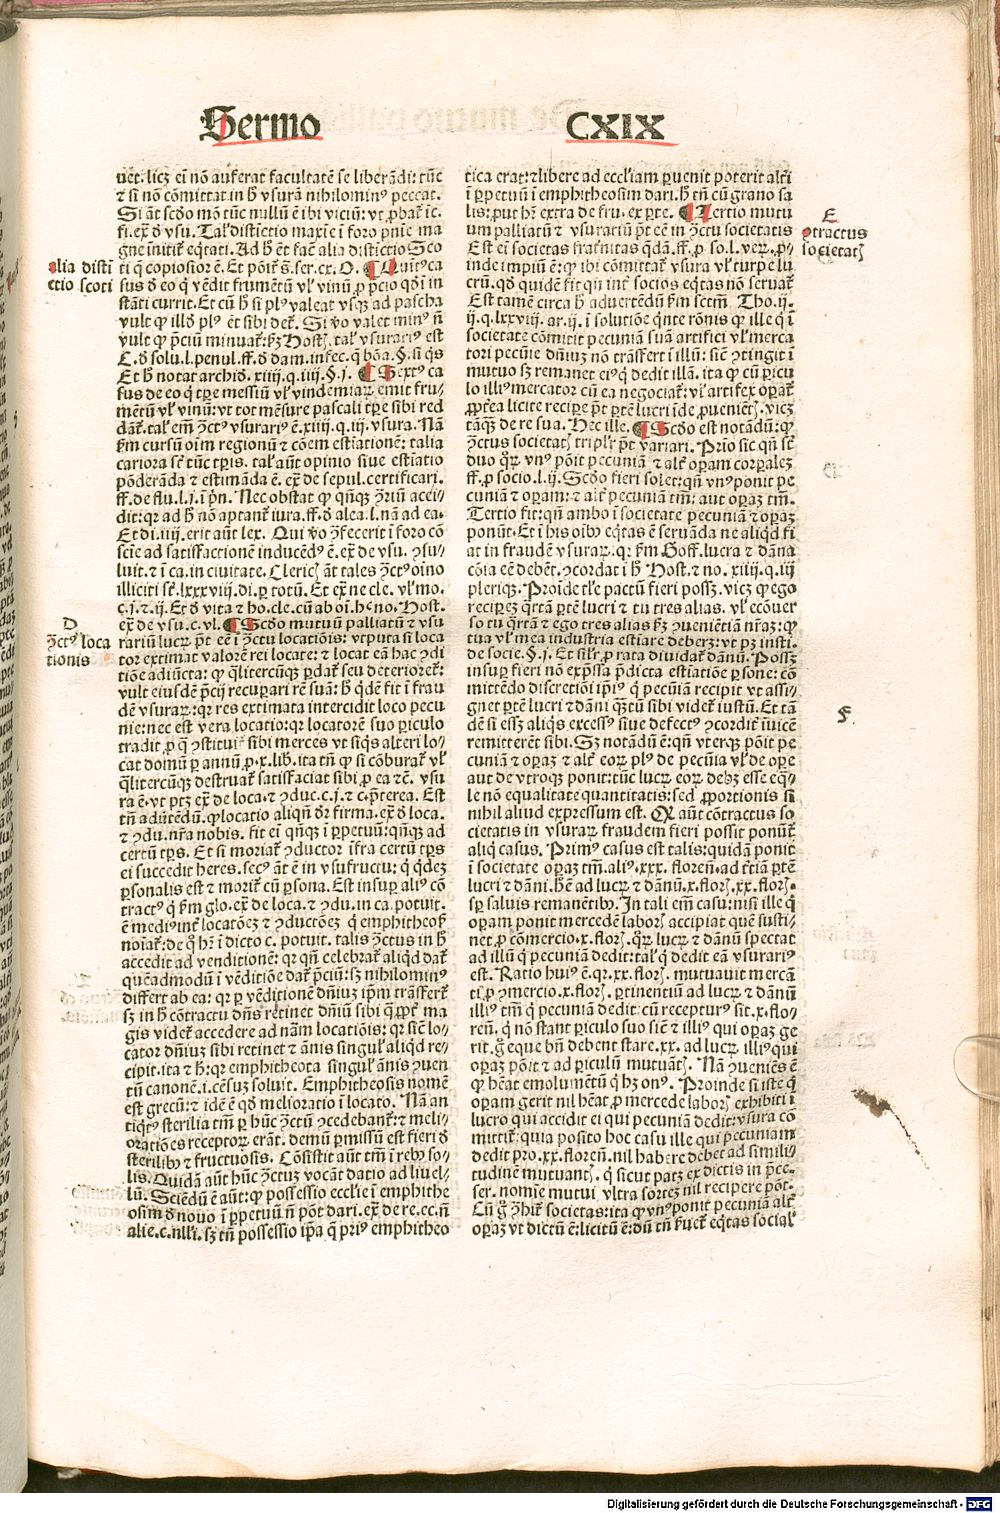 Sermo CXIX
vēt. licꝫ ei nō auferat facultatē se liberādi: tūc
⁊ si nō cōmittat in h vsurā nihilominꝰ peccat.
Si āt scdo mō tūc nullū ē ibi viciū: vt ꝓbat̄ ī c.
fi. ex̄ d̄ vsu. Tal̓ distictio maxie ī foro pnīe ma
gne īnitit̄ eq̄tati. Ad h ēt facē alia distictio Sco
alia disti
ctio scoti
ti q̄ copiosior ē. Et pōit̄ s̄. ser. cx. O. ¶ Quītꝰ ca
sus d̄ eo q̄ vēdit frumētū vl̓ vinū ꝓ p̄cio qd̓ī in
stāti currit. Et cū h si plꝰ valeat vsqꝫ ad pascha
vult ꝙ illd̓ plꝰ ēt sibi det̄. Si v̓o valet minꝰ n̄
vult ꝙ p̄ciū minuat̄: ẜm Host. tal̓ vsurariꝰ est
C. d̄ solu. l. penul. ff. d̄ dam. infec. q̄ bōa. §. si q̓s
Et h notat archid̓. xiiii. q. iiii. §. j. ¶ Sextꝰ ca
sus de eo q̄ tp̄re messiū vl̓ vindemiaꝝ emit fru/
mētū vl̓ vinū: vt tot mēsure pascali tp̄re sibi red
dāt̄. tal̓ em̄ ꝯctꝰ vsurariꝰ ē. xiiii. q. iii. ꝟ. vsura. Nā
ẜm cursū oim regionū ⁊ cōem estiationē: talia
cariora sc̄ tūc tp̄ris. tal̓ aūt opinio siue estiatio
pōderāda ⁊ estimāda ē. ex̄ de sepul. certificari.
ff. de flu. l. j. ī pn̄. Nec obstat ꝙ qn̄qꝫ ꝯriū acci/
dit: qr ad h nō aptant̄ iura. ff. d̄ alea. l. nā ad ea.
Et di. iiii. erit aūt lex. Qui v̓o ꝯfecerit ī foro cō
scīe ad satisfactionē inducēdꝰ ē. ex̄ de vsu. ꝯsu/
luit. ⁊ ī ca. in ciuitate. Clerici āt tales ꝯctꝰ oīno
illiciti sc̄. lxxxviii. di. ꝑ totū. Et ex̄ ne cle. vl̓ mo.
c. j. ⁊. ii. Et d̄ vita ⁊ ho. cle. cū ab oī. he no. Host.
ex̄ de vsu. c. vl̓. ¶ Scdo mutuū palliatū ⁊ vsu
D
ꝯctꝰ loca
tionis
rariū lucꝝ p̄t eē ī ꝯctu locatiōis: vtputa si loca
tor extimat valorē rei locate: ⁊ locat eā hac ꝯdi
tiōe adiūcta: ꝙ q̄litercūqꝫ ꝑdat̄ seu deterioret̄:
vult eiusdē p̄cij recuperari rē suā: h q̄dē fit ī frau
dē vsuraꝝ: qr res extimata intercidit loco pecu
nie: nec est vera locatio: qr locatorē suo ꝑiculo
tradit ꝓ q̄ ꝯstituit̄ sibi merces vt siq̓s alteri lo/
cat domū ꝑ annū ꝓ. x. lib̓. ita tn̄ ꝙ si cōburat̄ vl̓
q̄litercūqꝫ destruat̄ satisfaciat sibi ꝓ ea ⁊c̄. vsu
ra ē. vt ptꝫ ex̄ de loca. ⁊ ꝯduc. c. j. ⁊ c. p̄terea. Est
tn̄ adu̓tēdū. ꝙ locatio aliqn̄ dr̄ firma. ex̄ d̄ loca.
⁊ ꝯdu. nr̄a nobis. fit ei qn̄qꝫ ī ꝑpetuū: qn̄qꝫ ad
certū tp̄s. Et si moriat̄ ꝯductor īfra certū tp̄s
ei succedit heres. secꝰ āt ē in vsufructu: q̄ q̓dez
ꝑsonalis est ⁊ morit̄ cū ꝑsona. Est insuꝑ aliꝰ cō
tractꝰ q̄ ẜm glo. ex̄ de loca. ⁊ ꝯdu. in ca. potuit.
ē mediꝰ int̄ locatōeꝫ ⁊ ꝯductōeꝫ q̄ emphitheoẜ
noīat̄: de q̄ hr̄ ī dicto c. potuit. talis ꝯctus in h
accedit ad venditionē: qr qn̄ celebrat̄ aliqd̓ dat̄
quēadmodū ī vēditiōe dat̄ p̄ciū: sꝫ nihilominꝰ
differt ab ea: qr ꝑ vēditionē dn̄iuꝫ ip̄m trāsfert̄
sꝫ in h cōtractu dn̄s retinet dn̄iū sibi q̄ ꝓpt̄ ma
gis videt̄ accedere ad nām locatiōis: qr siē lo/
cator dn̄iuꝫ sibi retinet ⁊ ānis singul̓ aliqd̓ re/
cipit. ita ⁊ h: qr emphitheota singul̓ ānis ꝯuen
tū canonē. i. cēsuꝫ soluit. Emphitheosis nomē
est grecū: ⁊ idē ē qd̓ melioratio ī locato. Nā an
tiq̄tꝰ sterilia tm̄ ꝑ hūc ꝯctū ꝯcedebant̄: ⁊ meli/
oratiōes receptoꝝ erāt. demū ꝑmissū est fieri d̄
sterilibꝰ ⁊ fructuosis. Cōsistit aūt tm̄ ī rebꝰ so/
lis. Quidā aūt hūc ꝯctuꝫ vocāt datio ad liuel/
lū. Sciēdū ē aūt: ꝙ possessio eccl̓ie ī emphithe
osim d̄ nouo ī ꝑpetuū n̄ pōt dari. ex̄ de re. ec. n̄
alie. c. nlli. sꝫ tn̄ possessio ip̄a q̄ priꝰ emphitheo
tica erat: ⁊ libere ad eccl̓iam ꝑuenit poterit alt̄i
ī ꝑpetuū ī emphitheosim dari. h tn̄ cū grano sa
lis: ꝓut hr̄ extra de fru. ex ꝑte. ¶ Tertio mutu
E
ꝯtractus
societatis
um palliatū ⁊ vsurariū p̄t eē in ꝯctu societatis
Est ei societas frat̄nitas q̄dā. ff. ꝓ so. l. veꝝ. ꝓ/
inde impiū ē: ꝙ ibi cōmittat̄ vsura vl̓ turpe lu
crū. qd̓ quidē fit qn̄ int̄ socios eq̄tas nō seruat̄
Est tamē circa h aduertēdū ẜm sctm̄ Tho. ii.
ii. q. lxxviii. ar. ii. ī solutiōe q̓nte rōnis ꝙ ille q̄ ī
societate cōmittit pecuniā suā artifici vl̓ merca
tori pecunie dn̄iuꝫ nō trāsfert ī illū: sicē ꝯtingit ī
mutuo sꝫ remanet eiꝰ q̄ dedit illā. ita ꝙ cū ꝑicu
lo illiꝰ mercator cū ea negociat̄: vl̓ artifex oꝑat̄
ꝓpt̄ea licite recipe p̄t ꝑtē lucri īde ꝓuenietis. vicꝫ
tāq̄ꝫ de re sua. Hec ille. ¶ Scdo est notādū: ꝙ
ꝯctus societatis tripl̓r p̄t variari. Prīo sic qn̄ sc̄
duo qr̄ꝝ vnꝰ pōit pecuniā ⁊ alt̄ oꝑam corꝑaleꝫ
ff. ꝓ socio. l. ij. Scdo fieri solet: qn̄ vnꝰ ponit pe
cuniā ⁊ oꝑam: ⁊ alt̄ pecuniā tm̄: aut oꝑaꝫ tm̄.
Tertio fit: qn̄ ambo ī societate pecuniā ⁊ oꝑaꝫ
ponūt. Et ī his oībꝰ eq̄tas ē seruāda ne aliqd̓ fi
at in fraudē vsuraꝝ. qr ẜm Goff. lucra ⁊ dāna
cōia eē debēt. ꝯcordat ī h Host. ⁊ no. xiiii. q. iii
pleriqꝫ. Proide tl̓e pactū fieri possꝫ. vicꝫ ꝙ ego
recipeꝫ q̓rtā ꝑtē lucri ⁊ tu tres alias. vl̓ ecōuer
so tu q̓rtā ⁊ ego tres alias ẜꝫ ꝯueniētiā nr̄aꝫ: ꝙ
tua vl̓ mea industria estiare deberꝫ: vt pꝫ insti.
de socie. §. j. Et sil̓r ꝓ rata diuidat̄ dānū. Possꝫ
insuꝑ fieri nō exp̄ssa p̄dicta estiatiōe ꝑsone: cō
mittēdo discretiōi ip̄iꝰ q̄ pecuniā recipit vt assi/
gnet ꝑtē lucri ⁊ dāni qꝫtū sibi videt̄ iustū. Et tā
F
dē si essꝫ aliq̓s excessꝰ siue defectꝰ ꝯcordit̄ īuicē
remitterēt sibi. Sꝫ notādū ē: qn̄ vterqꝫ pōit pe
cuniā ⁊ oꝑaꝫ ⁊ alt̄ eoꝝ plꝰ de pecūia vl̓ de oꝑe
aut de vtroqꝫ ponit: tūc lucꝝ eoꝝ debꝫ esse eq̄/
le nō equalitate quantitatis: sed ꝓportionis si
nihil aliud expressum est. Qz aūt cōtractus so
cietatis in vsuraꝝ fraudem fieri possit ponūt̄
aliq̄ casus. Primꝰ casus est talis: quidā ponit
ī societate oꝑaꝫ tm̄. aliꝰ. xxx. florēn̄. ad t̄tiā ꝑtē
lucri ⁊ dāni. h̄ē ad lucꝝ ⁊ dānū. x. floꝝ. xx. floꝝ.
sꝑ saluis remanētibꝰ. In tali em̄ casu: nisi ille q̄
oꝑam ponit mercedē laboris accipiat quē susti/
net ꝓ comercio. x. floꝝ. qr̄ꝝ lucꝝ ⁊ dānū spectat
ad illū q̄ pecuniā dedit: tal̓ q̄ dedit eā vsurariꝰ
est. Ratio huiꝰ ē. qr. xx. floꝝ. mutuauit mercā
ti ꝓ ꝯmercio. x. floꝝ. ꝑtinentiū ad lucꝝ ⁊ dānū
illiꝰ tm̄ q̄ pecuniā dedit: cū recepturꝰ sit. x. flo/
ren̄. q̄ nō stant ꝑiculo suo siē ⁊ illiꝰ qui oꝑaꝫ ge
rit. ḡ eque bn̄ debent stare. xx. ad lucꝝ illiꝰ qui
oꝑaꝫ pōit ⁊ ad ꝑiculū mutuātis. Nā ꝯueniēs ē
ꝙ hēat emolumētū q̄ hꝫ onꝰ. Proinde si iste q̄
oꝑam gerit nil hēat ꝓ mercede laboris exhibiti ī
lucro qui accidit ei qui pecuniā dedit: vsura cō
mittit̄: quia posito hoc casu ille qui pecuniam
dedit pro. xx. floren̄. nil habere debet ad simili/
tudinē mutuantis. q̄ sicut patꝫ ex dictis in p̄ce.
ser. nomīe mutui vltra sorteꝫ nil recipere pōt.
Cū ḡ ꝯhit̄ societas: ita ꝙ vnꝰ ponit pecuniā alt̄
oꝑaꝫ vt dictū ē: licitū ē: dū tn̄ ẜuet̄ eq̄tas social̓
Digitalisierung gefördert durch die Deutsche Forschungsgemeinschaft - DFG